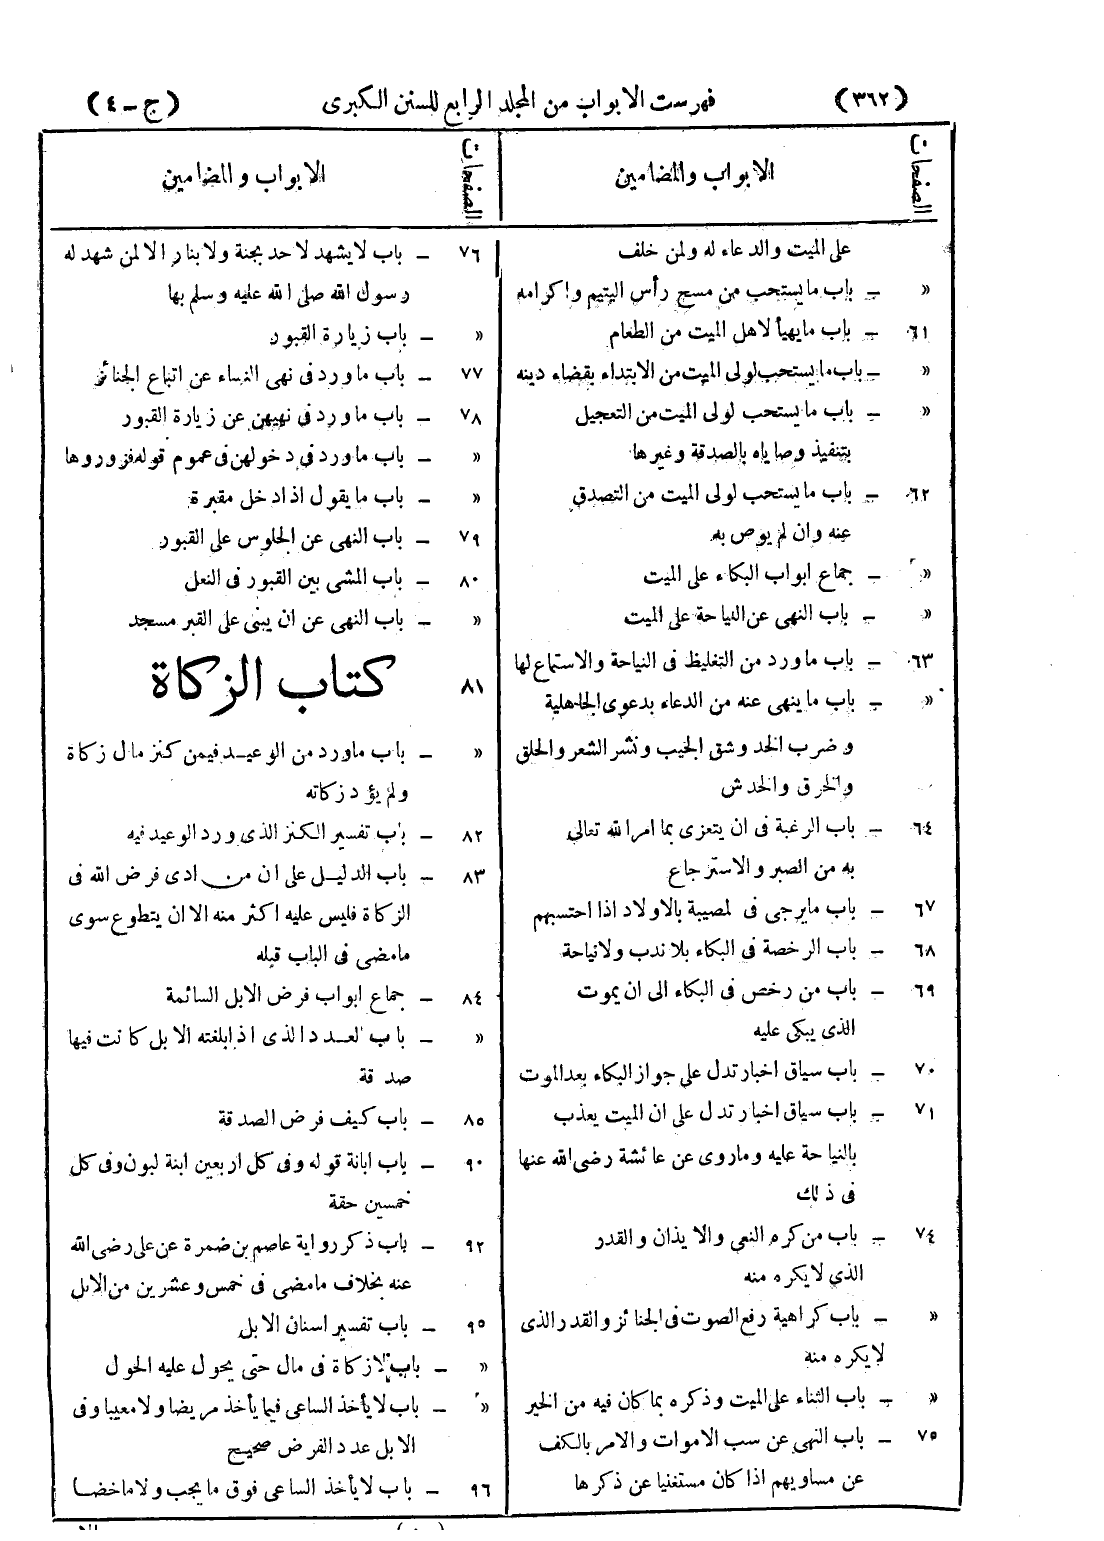 (٣٦٢) فهرست الابواب من المجلد الرابع للسنن الكبرى (ج - ٤)
الصفحات الابواب والمضامين
على الميت والدعاء له ولمن خلف
» - باب ما يستحب من مسح رأس اليتيم واكرامه
٦١ - باب ما يهيأ لاهل الميت من الطعام
» - باب ما يستحب لولى الميت من الابتداء بقضاء دينه
» - باب ما يستحب لولى الميت من التعجيل
بتنفيذ وصاياه بالصدقة وغيرها
٦٢ - باب ما يستحب لولى الميت من التصدق
عنه وان لم يوص به
» - جماع ابواب البكاء على الميت
» - باب النهى عن النياحة على الميت
٦٣ - باب ما ورد من التغليظ فى النياحة والاستماع لها
» - باب ما ينهى عنه من الدعاء بدعوى الجاهلية
وضرب الخد وشق الجيب ونشر الشعر والحلق
والخرق والخدش
٦٤ - باب الرغبة فى ان يتعزى بما امر الله تعالى
به من الصبر والاسترجاع
٦٧ - باب ما يرجى فى المصيبة بالاولاد اذا احتسبهم
٦٨ - باب الرخصة فى البكاء بلا ندب ولا نياحة
٦٩ - باب من رخص فى البكاء الى ان يموت
الذى يبكى عليه
٧٠ - باب سياق اخبار تدل على جواز البكاء بعد الموت
٧١ - باب سياق اخبار تدل على ان الميت يعذب
بالنياحة عليه وما روى عن عائشة رضى الله عنها
فى ذلك
٧٤ - باب من كره النعى والايذان والقدر
الذي لا يكره منه
» - باب كراهية رفع الصوت فى الجنائز والقدر الذى
لا يكره منه
» - باب الثناء على الميت وذكره بما كان فيه من الخير
٧٥ - باب النهى عن سب الاموات والامر بالكف
عن مساويهم اذا كان مستغنيا عن ذكرها
الصفحات الابواب والمضامين
٧٦ - باب لا يشهد لاحد بجنة ولا بنار الا لمن شهد له
رسول الله صلى الله عليه وسلم بها
» - باب زيارة القبور
٧٧ - باب ما ورد فى نهى النساء عن اتباع الجنائز
٧٨ - باب ما ورد فى نهيهن عن زيارة القبور
» - باب ما ورد فى دخولهن فى عموم قوله فزوروها
» - باب ما يقول اذا دخل مقبرة
٧٩ - باب النهى عن الجلوس على القبور
٨٠ - باب المشى بين القبور فى النعل
» - باب النهى عن ان يبنى على القبر مسجد
٨١ كتاب الزكاة
» - باب ماورد من الوعيد فيمن كنز مال زكاة
ولم يؤد زكاته
٨٢ - باب تفسير الكنز الذى ورد الوعيد فيه
٨٣ - باب الدليل على ان من ادى فرض الله فى
الزكاة فليس عليه اكثر منه الا ان يتطوع سوى
ما مضى فى الباب قبله
٨٤ - جماع ابواب فرض الابل السائمة
» - باب العدد الذى اذا بلغته الابل كانت فيها
صدقة
٨٥ - باب كيف فرض الصدقة
٩٠ - باب ابانة قوله وفى كل اربعين ابنة لبون وفى كل
خمسين حقة
٩٢ - باب ذكر رواية عاصم بن ضمرة عن على رضى الله
عنه بخلاف ما مضى فى خمس وعشرين من الابل
٩٥ - باب تفسير اسنان الابل
» - باب لا زكاة فى مال حتى يحول عليه الحول
» - باب لا يأخذ الساعى فيما يأخذ مريضا ولا معيبا وفى
الابل عدد الفرض صحيح
٩٦ - باب لا يأخذ الساعى فوق ما يجب ولا ماخضا